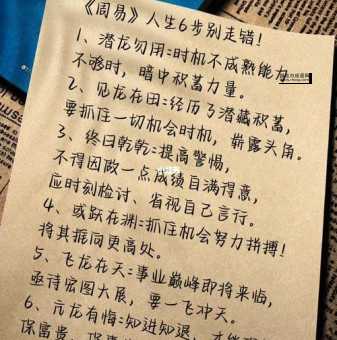 《周易》人生6步别走错!
1、潜龙勿用:时机不成熟能力
不够时,暗中积蓄力量。
2、见龙在田:经历了潜藏积蓄,
要抓住一切机会时机,崭露头角。
3、终日乾乾:提高警惕,
不得因做一点成绩自满得意,
应时刻检讨、省视自己言行。
4、或跃在渊:抓住机会努力拼搏!
将其振向更高处。
5、飞龙在天:事业巅峰即将来临,
亟待宏图大展,要一飞冲天。
6、亢龙有悔:知进知退,才能
保富贵、保